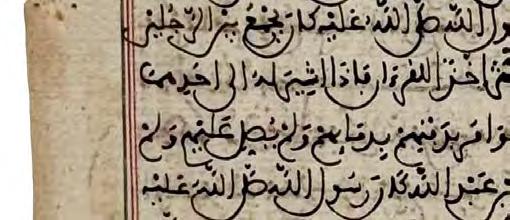 ول الله صلى الله عليه كان يجمع بين الرجلين
اخذا للقرءان فاذا اشير له الى احدهما
بدمائهم ولم يصل عليهم ولم
عبد الله كان رسول الله صلى الله عليه